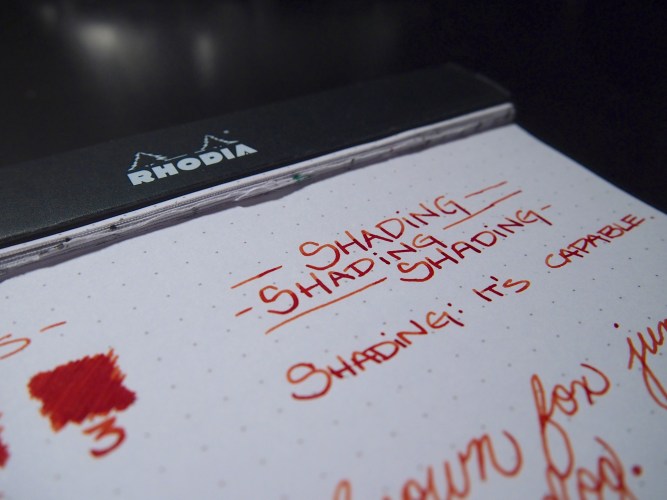 RHODIA
— SHADING —
- SHADING —
— SHADING -
SHADING: IT'S CAPABLE.
S -
3
fox